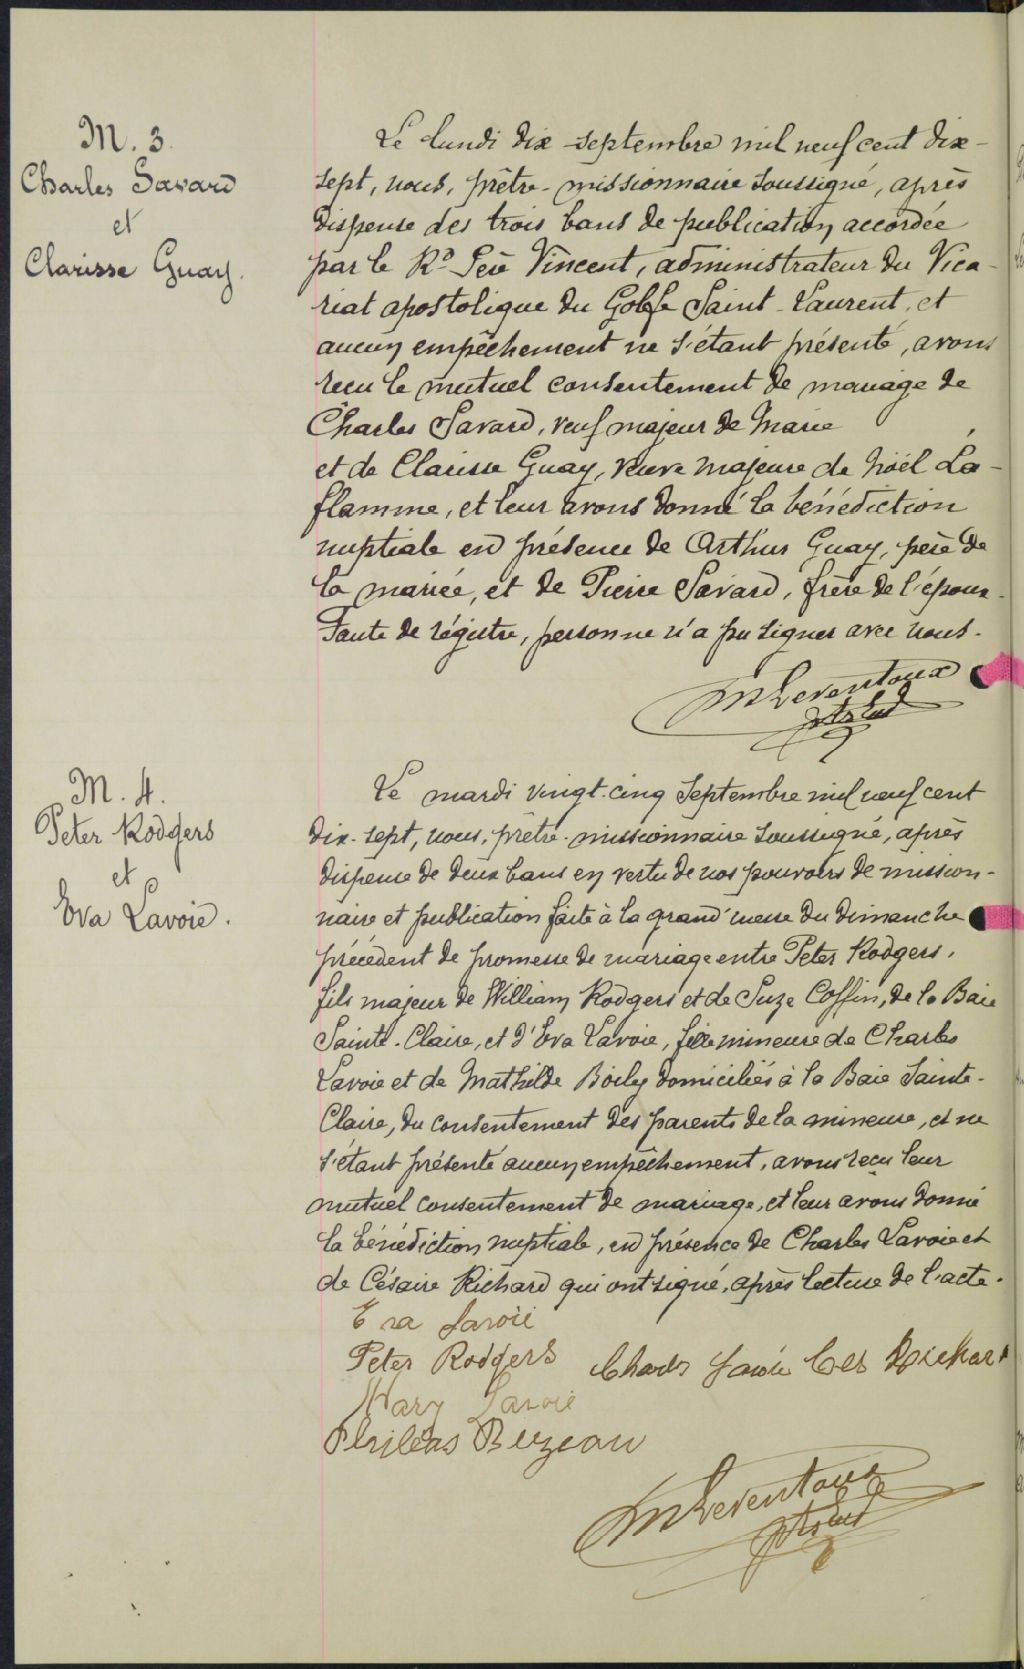 M. 3.
Charles Savard
et
Clarisse Guay.
Le lundi dix septembre mil neuf cent dix-
sept, nous, prêtre-missionnaire soussigné, après
dispense des trois bans de publication accordée
par le Rd Père Vincent, administrateur du Vica-
riat apostolique du Golfe Saint-Laurent, et
aucun empêchement ne s'étant présenté, avons
reçu le mutuel consentement de mariage de
Charles Savard, veuf majeur de Marie
et de Clarisse Guay, veuve majeure de Noël La-
flamme, et leur avons donné la bénédiction
nuptiale en présence de Arthur Guay, père de
la mariée, et de Pierre Savard, frère de l'époux.
Faute de régistre, personne n'a pu signer avec nous.
M Leventoux
M. 4.
Peter Rodgers
et
Eva Lavoie.
Le mardi vingt-cinq septembre mil neuf cent
dix-sept, nous, prêtre-missionnaire soussigné, après
dispense de deux bans en vertu de nos pouvoirs de mission-
naire et publication faite à la grand'messe du dimanche
précédent de promesse de mariage entre Peter Rodgers,
fils majeur de William Rodgers et de Suze Coffin, de la Baie
Sainte-Claire, et d'Eva Lavoie, fille mineure de Charles
Lavoie et de Mathilde Boily domiciliés à la Baie Sainte-
Claire, du consentement des parents de la mineure, et ne
s'étant présenté aucun empêchement, avons reçu leur
mutuel consentement de mariage, et leur avons donné
la bénédiction nuptiale, en présence de Charles Lavoie et
de Césaire Richard qui ont signé, après lecture de l'acte.
Eva Lavoie
Peter Rodgers Charles Lavoie Ces Richard
Mary Lavoie
Philéas Buzeau
M Leventoux